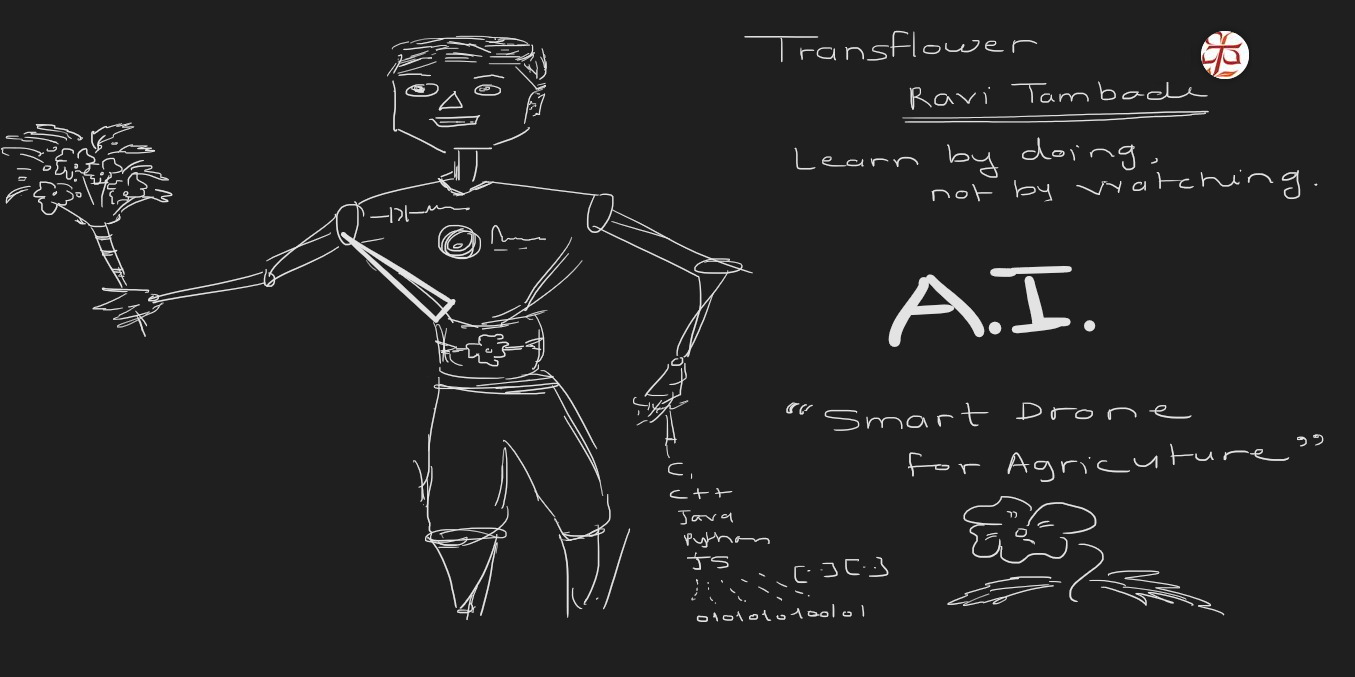 Transflower
Ravi Tambade
Learn by doing,
not by watching.
A.I.
““Smart Drone
for Agricuture””
C,
C++
Java
Python
JS
[..][..]